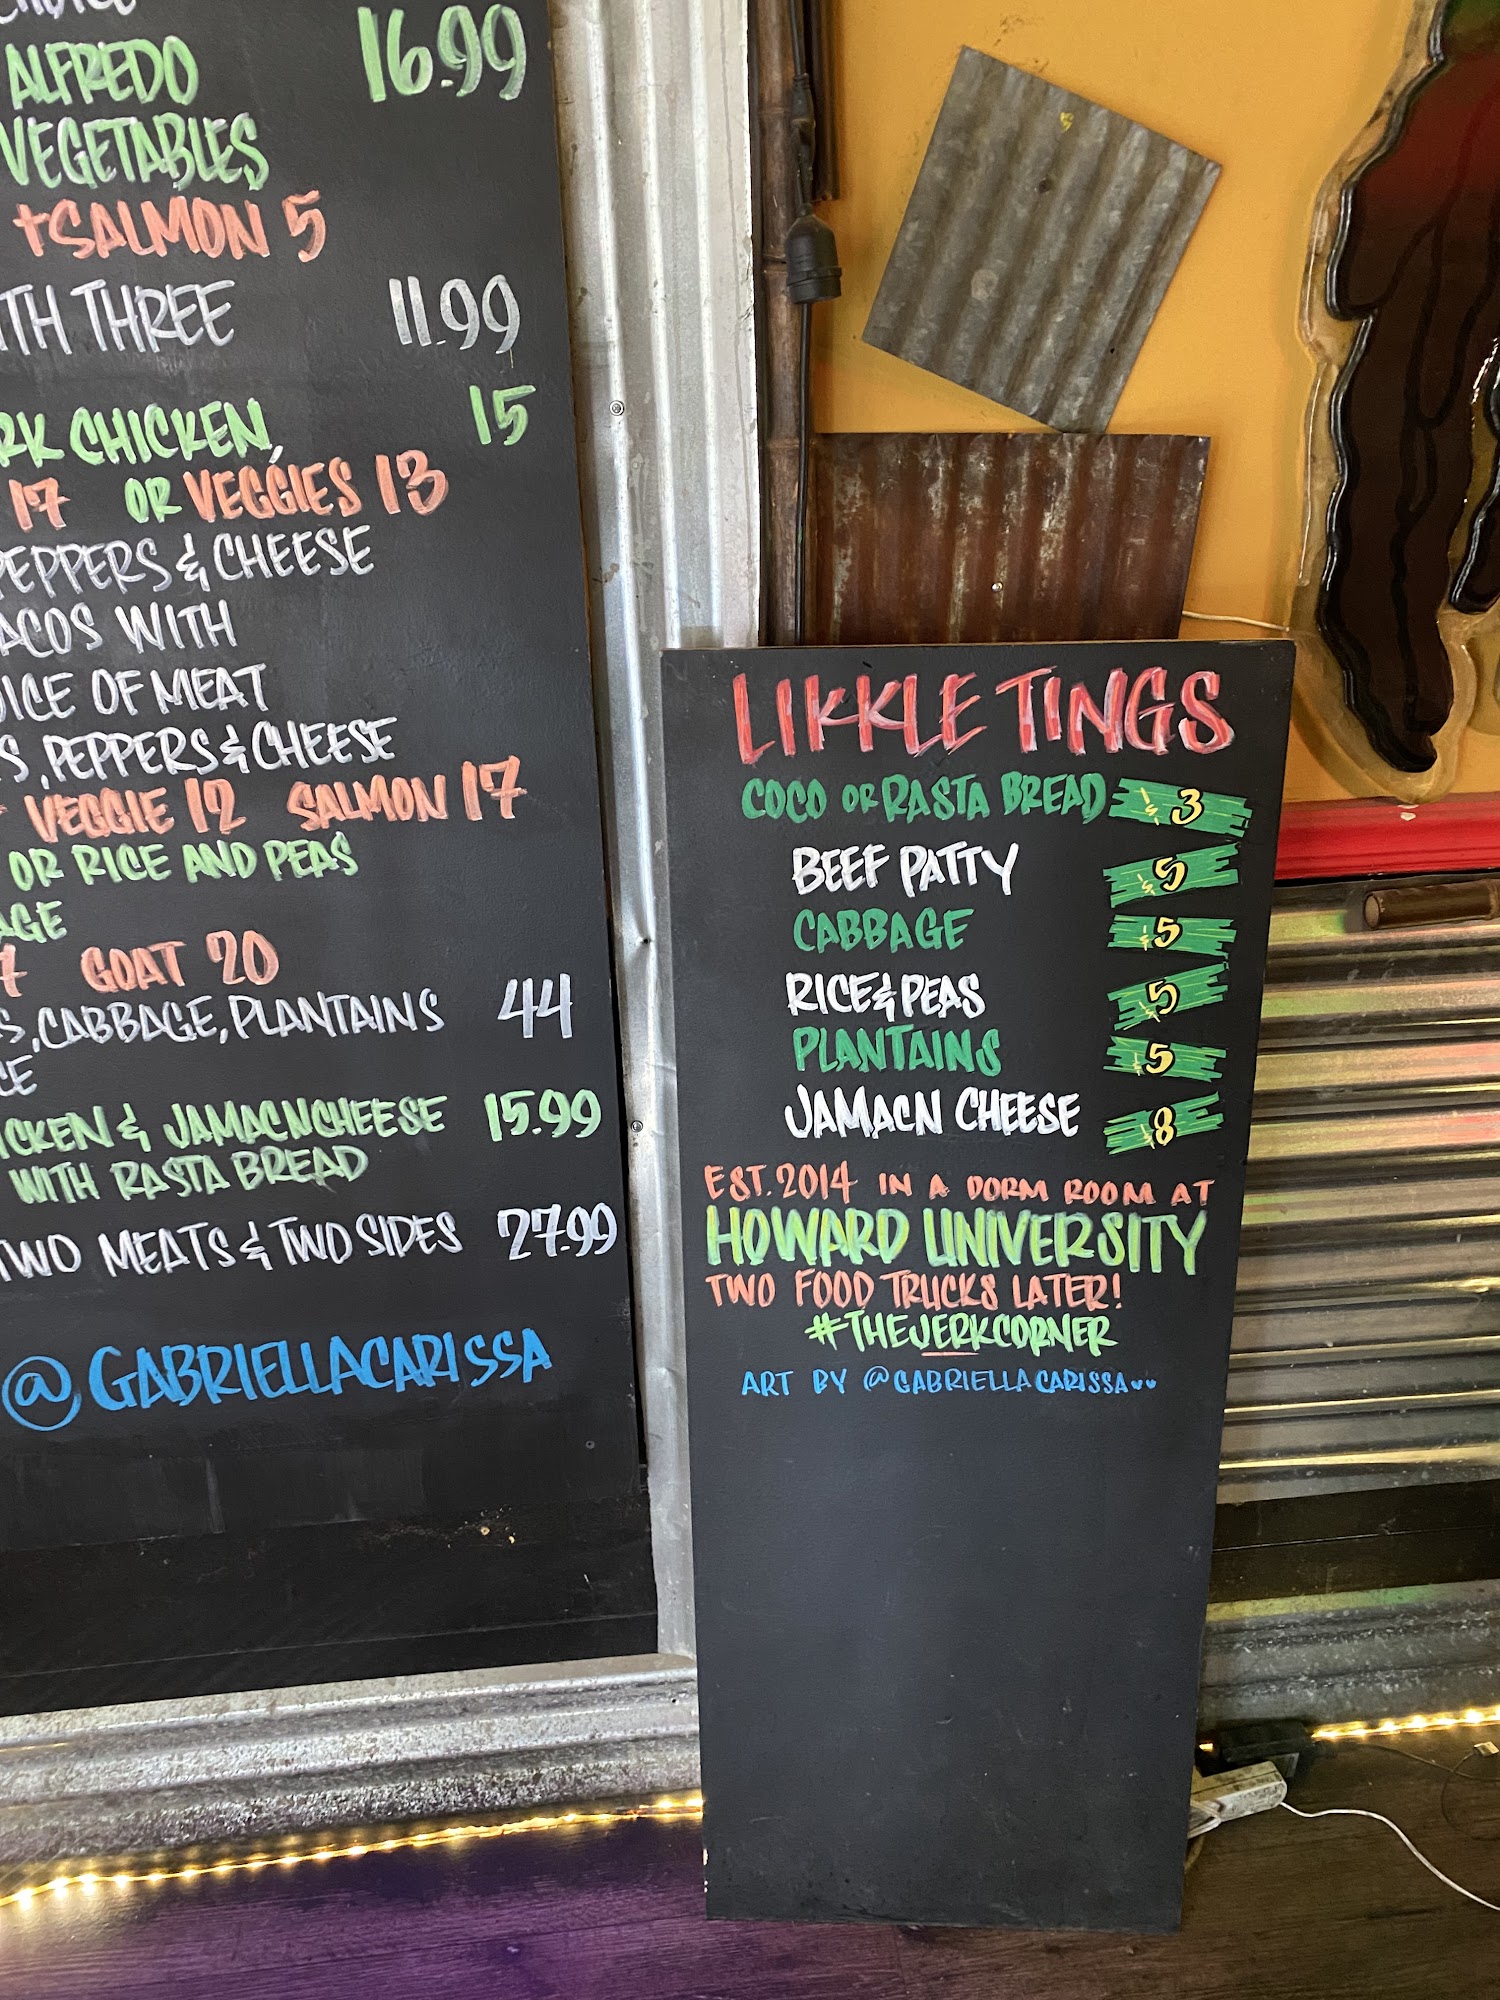 ALFREDO 16.99
VEGETABLES
+SALMON 5
THREE 11.99
CHICKEN, 15
17 OR VEGGIES 13
PEPPERS & CHEESE
WITH
OF MEAT
, PEPPERS & CHEESE
VEGGIE 12 SALMON 17
OR RICE AND PEAS
GOAT 20
, CABBAGE, PLANTAINS 44
& JAMACN CHEESE 15.99
WITH RASTA BREAD
TWO MEATS & TWO SIDES 27.99
@GABRIELLACARISSA
LIKKLE TINGS
COCO OR RASTA BREAD $3
BEEF PATTY $5
CABBAGE $5
RICE & PEAS $5
PLANTAINS $5
JAMACN CHEESE $8
EST. 2014 IN A DORM ROOM AT
HOWARD UNIVERSITY
TWO FOOD TRUCKS LATER!
#THEJERKCORNER
ART BY @GABRIELLACARISSA